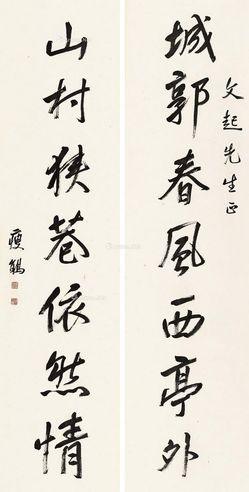 文起先生正
城郭春風西亭外
山村狹巷依然情
瘦鶴